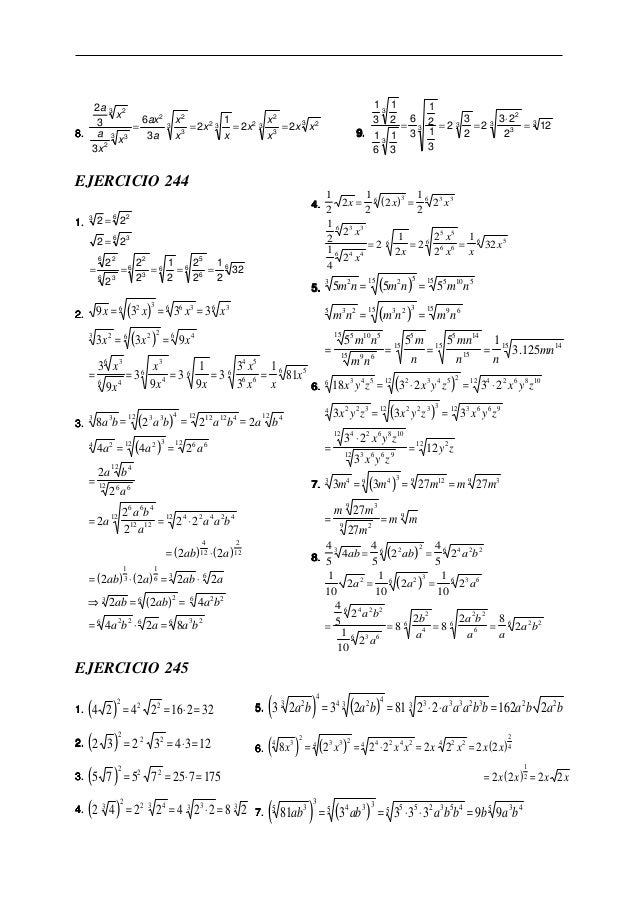 8. \frac{\frac{2a}{3}\sqrt[3]{x^2}}{\frac{a}{3x^2}\sqrt[3]{x^3}} = \frac{6ax^2}{3a}\sqrt[3]{\frac{x^2}{x^3}} = 2x^2\sqrt[3]{\frac{1}{x}} = 2x^2\sqrt[3]{\frac{x^2}{x^3}} = 2x\sqrt[3]{x^2}
9. \frac{\frac{1}{3}\sqrt[3]{\frac{1}{2}}}{\frac{1}{6}\sqrt[3]{\frac{1}{3}}} = \frac{6}{3}\sqrt[3]{\frac{\frac{1}{2}}{\frac{1}{3}}} = 2\sqrt[3]{\frac{3}{2}} = 2\sqrt[3]{\frac{3·2^2}{2^3}} = \sqrt[3]{12}
EJERCICIO 244
1. \sqrt[3]{2} = \sqrt[6]{2^2}
\sqrt{2} = \sqrt[6]{2^3}
= \frac{\sqrt[6]{2^2}}{\sqrt[6]{2^3}} = \sqrt[6]{\frac{2^2}{2^3}} = \sqrt[6]{\frac{1}{2}} = \sqrt[6]{\frac{2^5}{2^6}} = \frac{1}{2}\sqrt[6]{32}
2. \sqrt{9x} = \sqrt[6]{(3^2x)^3} = \sqrt[6]{3^6x^3} = 3\sqrt[6]{x^3}
\sqrt[3]{3x^2} = \sqrt[6]{(3x^2)^2} = \sqrt[6]{9x^4}
= \frac{3\sqrt[6]{x^3}}{\sqrt[6]{9x^4}} = 3\sqrt[6]{\frac{x^3}{9x^4}} = 3\sqrt[6]{\frac{1}{9x}} = 3\sqrt[6]{\frac{3^4x^5}{3^6x^6}} = \frac{1}{x}\sqrt[6]{81x^5}
3. \sqrt[3]{8a^3b} = \sqrt[12]{(2^3a^3b)^4} = \sqrt[12]{2^{12}a^{12}b^4} = 2a\sqrt[12]{b^4}
\sqrt[4]{4a^2} = \sqrt[12]{(4a^2)^3} = \sqrt[12]{2^6a^6}
= \frac{2a\sqrt[12]{b^4}}{\sqrt[12]{2^6a^6}}
= 2a\sqrt[12]{\frac{2^6a^6b^4}{2^{12}a^{12}}} = \sqrt[12]{2^4·2^2a^4a^2b^4}
= (2ab)^{\frac{4}{12}}·(2a)^{\frac{2}{12}}
= (2ab)^{\frac{1}{3}}·(2a)^{\frac{1}{6}} = \sqrt[3]{2ab}·\sqrt[6]{2a}
⇒ \sqrt[3]{2ab} = \sqrt[6]{(2ab)^2} = \sqrt[6]{4a^2b^2}
= \sqrt[6]{4a^2b^2}·\sqrt[6]{2a} = \sqrt[6]{8a^3b^2}
4. \frac{1}{2}\sqrt{2x} = \frac{1}{2}\sqrt[6]{(2x)^3} = \frac{1}{2}\sqrt[6]{2^3x^3}
\frac{\frac{1}{2}\sqrt[6]{2^3x^3}}{\frac{1}{4}\sqrt[6]{2^4x^4}} = 2\sqrt[6]{\frac{1}{2x}} = 2\sqrt[6]{\frac{2^5x^5}{2^6x^6}} = \frac{1}{x}\sqrt[6]{32x^5}
5. \sqrt[3]{5m^2n} = \sqrt[15]{(5m^2n)^5} = \sqrt[15]{5^5m^{10}n^5}
\sqrt[5]{m^3n^2} = \sqrt[15]{(m^3n^2)^3} = \sqrt[15]{m^9n^6}
= \frac{\sqrt[15]{5^5m^{10}n^5}}{\sqrt[15]{m^9n^6}} = \sqrt[15]{\frac{5^5m}{n}} = \sqrt[15]{\frac{5^5mn^{14}}{n^{15}}} = \frac{1}{n}\sqrt[15]{3.125mn^{14}}
6. \sqrt[6]{18x^3y^4z^5} = \sqrt[12]{(3^2·2x^3y^4z^5)^2} = \sqrt[12]{3^4·2^2x^6y^8z^{10}}
\sqrt[4]{3x^2y^2z^3} = \sqrt[12]{(3x^2y^2z^3)^3} = \sqrt[12]{3^3x^6y^6z^9}
= \frac{\sqrt[12]{3^4·2^2x^6y^8z^{10}}}{\sqrt[12]{3^3x^6y^6z^9}} = \sqrt[12]{12y^2z}
7. \sqrt[3]{3m^4} = \sqrt[9]{(3m^4)^3} = \sqrt[9]{27m^{12}} = m\sqrt[9]{27m^3}
= \frac{m\sqrt[9]{27m^3}}{\sqrt[9]{27m^2}} = m\sqrt[9]{m}
8. \frac{4}{5}\sqrt[3]{4ab} = \frac{4}{5}\sqrt[6]{(2^2ab)^2} = \frac{4}{5}\sqrt[6]{2^4a^2b^2}
\frac{1}{10}\sqrt{2a^2} = \frac{1}{10}\sqrt[6]{(2a^2)^3} = \frac{1}{10}\sqrt[6]{2^3a^6}
= \frac{\frac{4}{5}\sqrt[6]{2^4a^2b^2}}{\frac{1}{10}\sqrt[6]{2^3a^6}} = 8\sqrt[6]{\frac{2b^2}{a^4}} = 8\sqrt[6]{\frac{2a^2b^2}{a^6}} = \frac{8}{a}\sqrt[6]{2a^2b^2}
EJERCICIO 245
1. (4\sqrt{2})^2 = 4^2\sqrt{2^2} = 16·2 = 32
2. (2\sqrt{3})^2 = 2^2\sqrt{3^2} = 4·3 = 12
3. (5\sqrt{7})^2 = 5^2\sqrt{7^2} = 25·7 = 175
4. (2\sqrt[3]{4})^2 = 2^2\sqrt[3]{2^4} = 4\sqrt[3]{2^3·2} = 8\sqrt[3]{2}
5. (3\sqrt[3]{2a^2b})^4 = 3^4\sqrt[3]{(2a^2b)^4} = 81\sqrt[3]{2^3·2·a^3a^3a^2b^3b} = 162a^2b\sqrt{2a^2b}
6. (\sqrt[4]{8x^3})^2 = \sqrt[4]{(2^3x^3)^2} = \sqrt[4]{2^4·2^2x^4x^2} = 2x\sqrt[4]{2^2x^2} = 2x(2x)^{\frac{2}{4}}
= 2x(2x)^{\frac{1}{2}} = 2x\sqrt{2x}
7. (\sqrt[5]{81ab^3})^3 = \sqrt[5]{(3^4ab^3)^3} = \sqrt[5]{3^5·3^5·3^2a^3b^5b^4} = 9b\sqrt[5]{9a^3b^4}